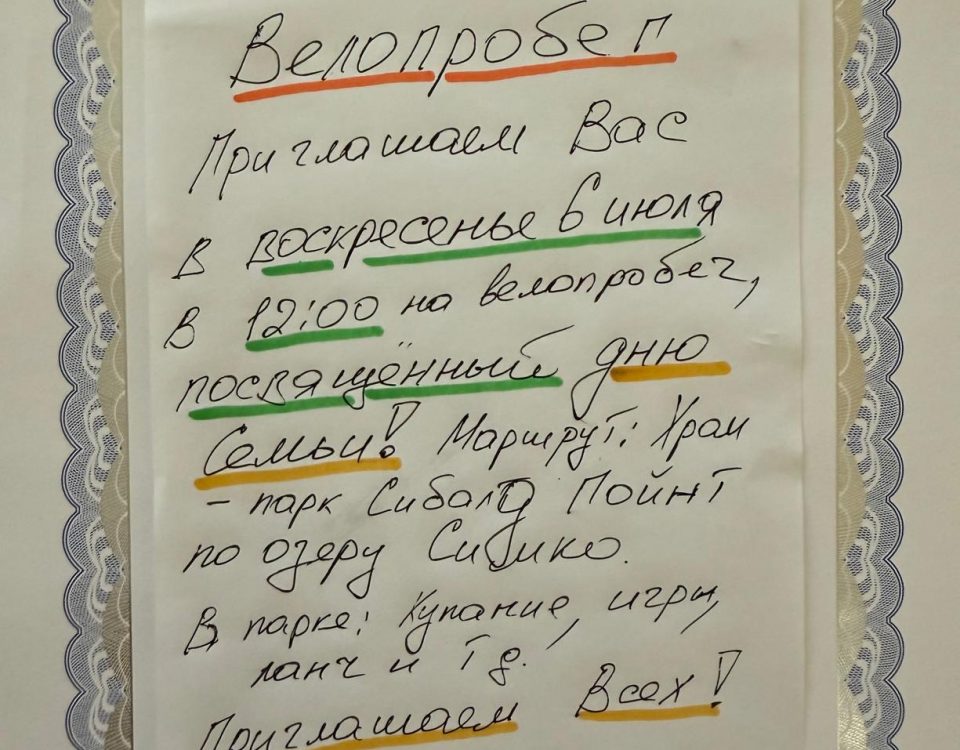 Велопробег
Приглашаем Вас
в воскресенье 6 июля
в 12:00 на велопробег,
посвящённый дню
Семьи! Маршрут: Храм
- парк Сибалд Пойнт
по озеру Симко.
В парке: Купание, игры,
ланч и т д.
Приглашаем Всех!